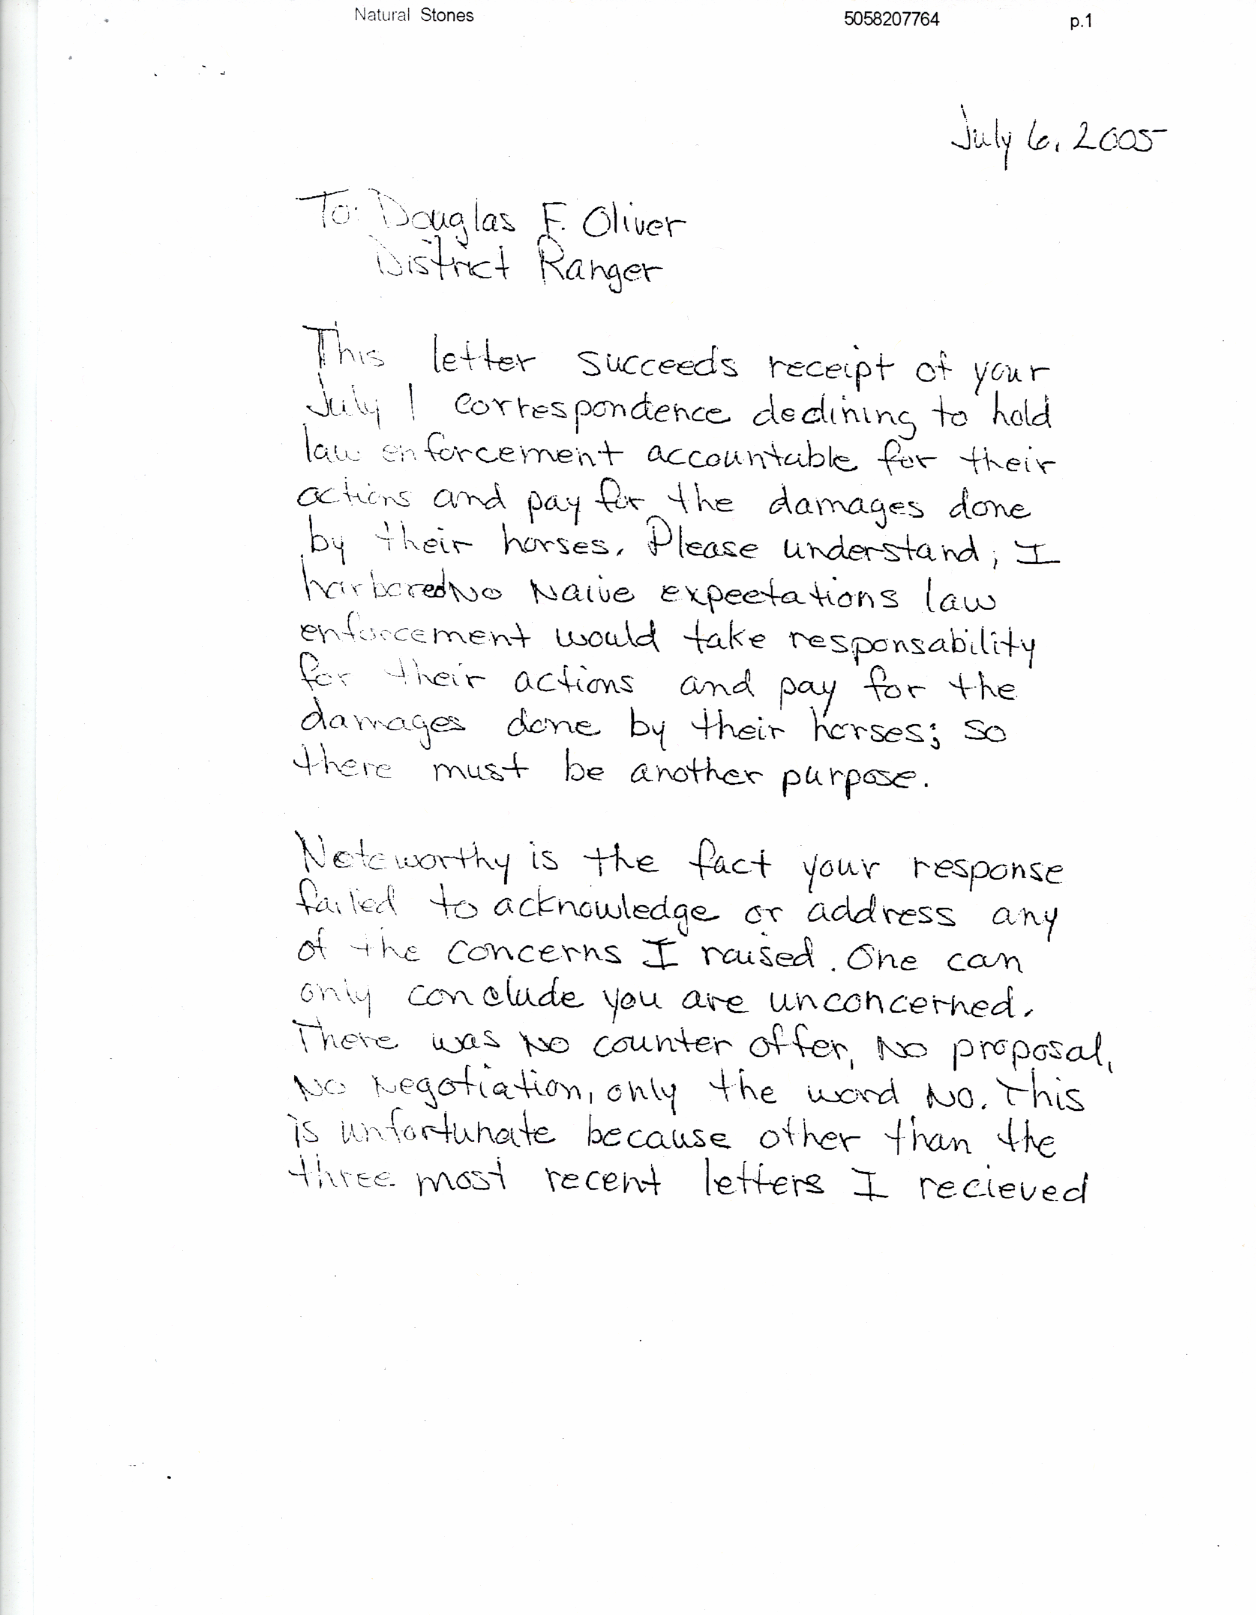 Natural Stones 5058207764 p.1
July 6, 2005
To: Douglas F. Oliver
District Ranger
This letter succeeds receipt of your
July 1 correspondence declining to hold
law enforcement accountable for their
actions and pay for the damages done
by their horses. Please understand, I
harbored No Naive expectations law
enforcement would take responsability
for their actions and pay for the
damages done by their horses; so
there must be another purpose.
Noteworthy is the fact your response
failed to acknowledge or address any
of the concerns I raised. One can
only conclude you are unconcerned.
There was No counter offer, No proposal,
No Negotiation, only the word No. This
is unfortunate because other than the
three most recent letters I recieved